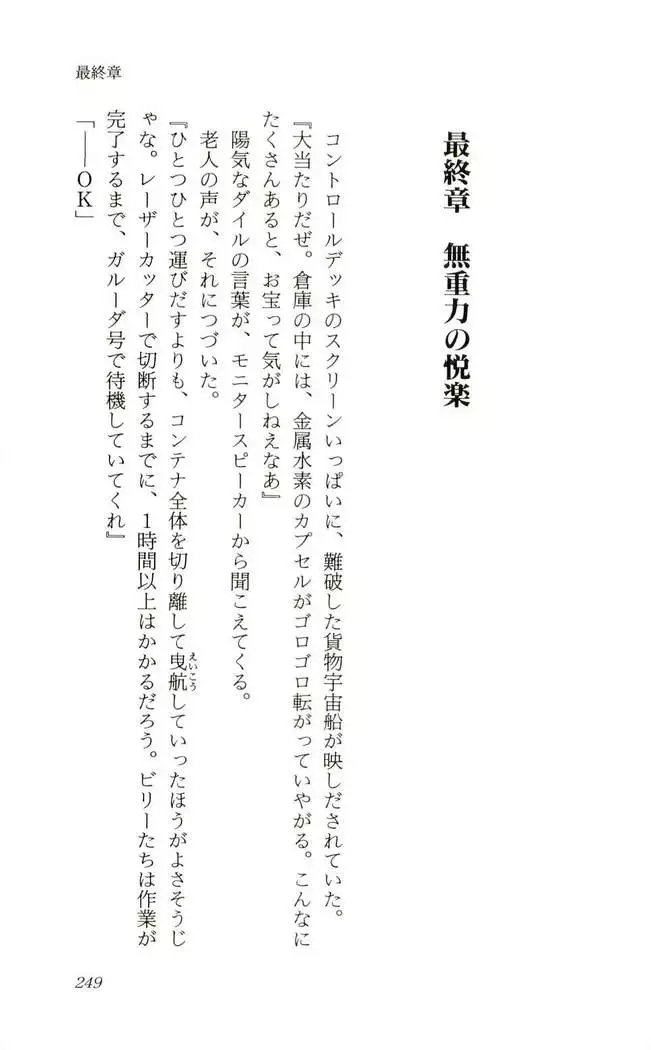 最終章
最終章　無重力の悦楽
　コントロールデッキのスクリーンいっぱいに、難破した貨物宇宙船が映しだされていた。
『大当たりだぜ。倉庫の中には、金属水素のカプセルがゴロゴロ転がっていやがる。こんなに
たくさんあると、お宝って気がしねえなあ』
　陽気なダイルの言葉が、モニタースピーカーから聞こえてくる。
　老人の声が、それにつづいた。
『ひとつひとつ運びだすよりも、コンテナ全体を切り離して曳航していったほうがよさそうじ
えいこう
ゃな。レーザーカッターで切断するまでに、１時間以上はかかるだろう。ビリーたちは作業が
完了するまで、ガルーダ号で待機していてくれ』
「――ＯＫ」
249